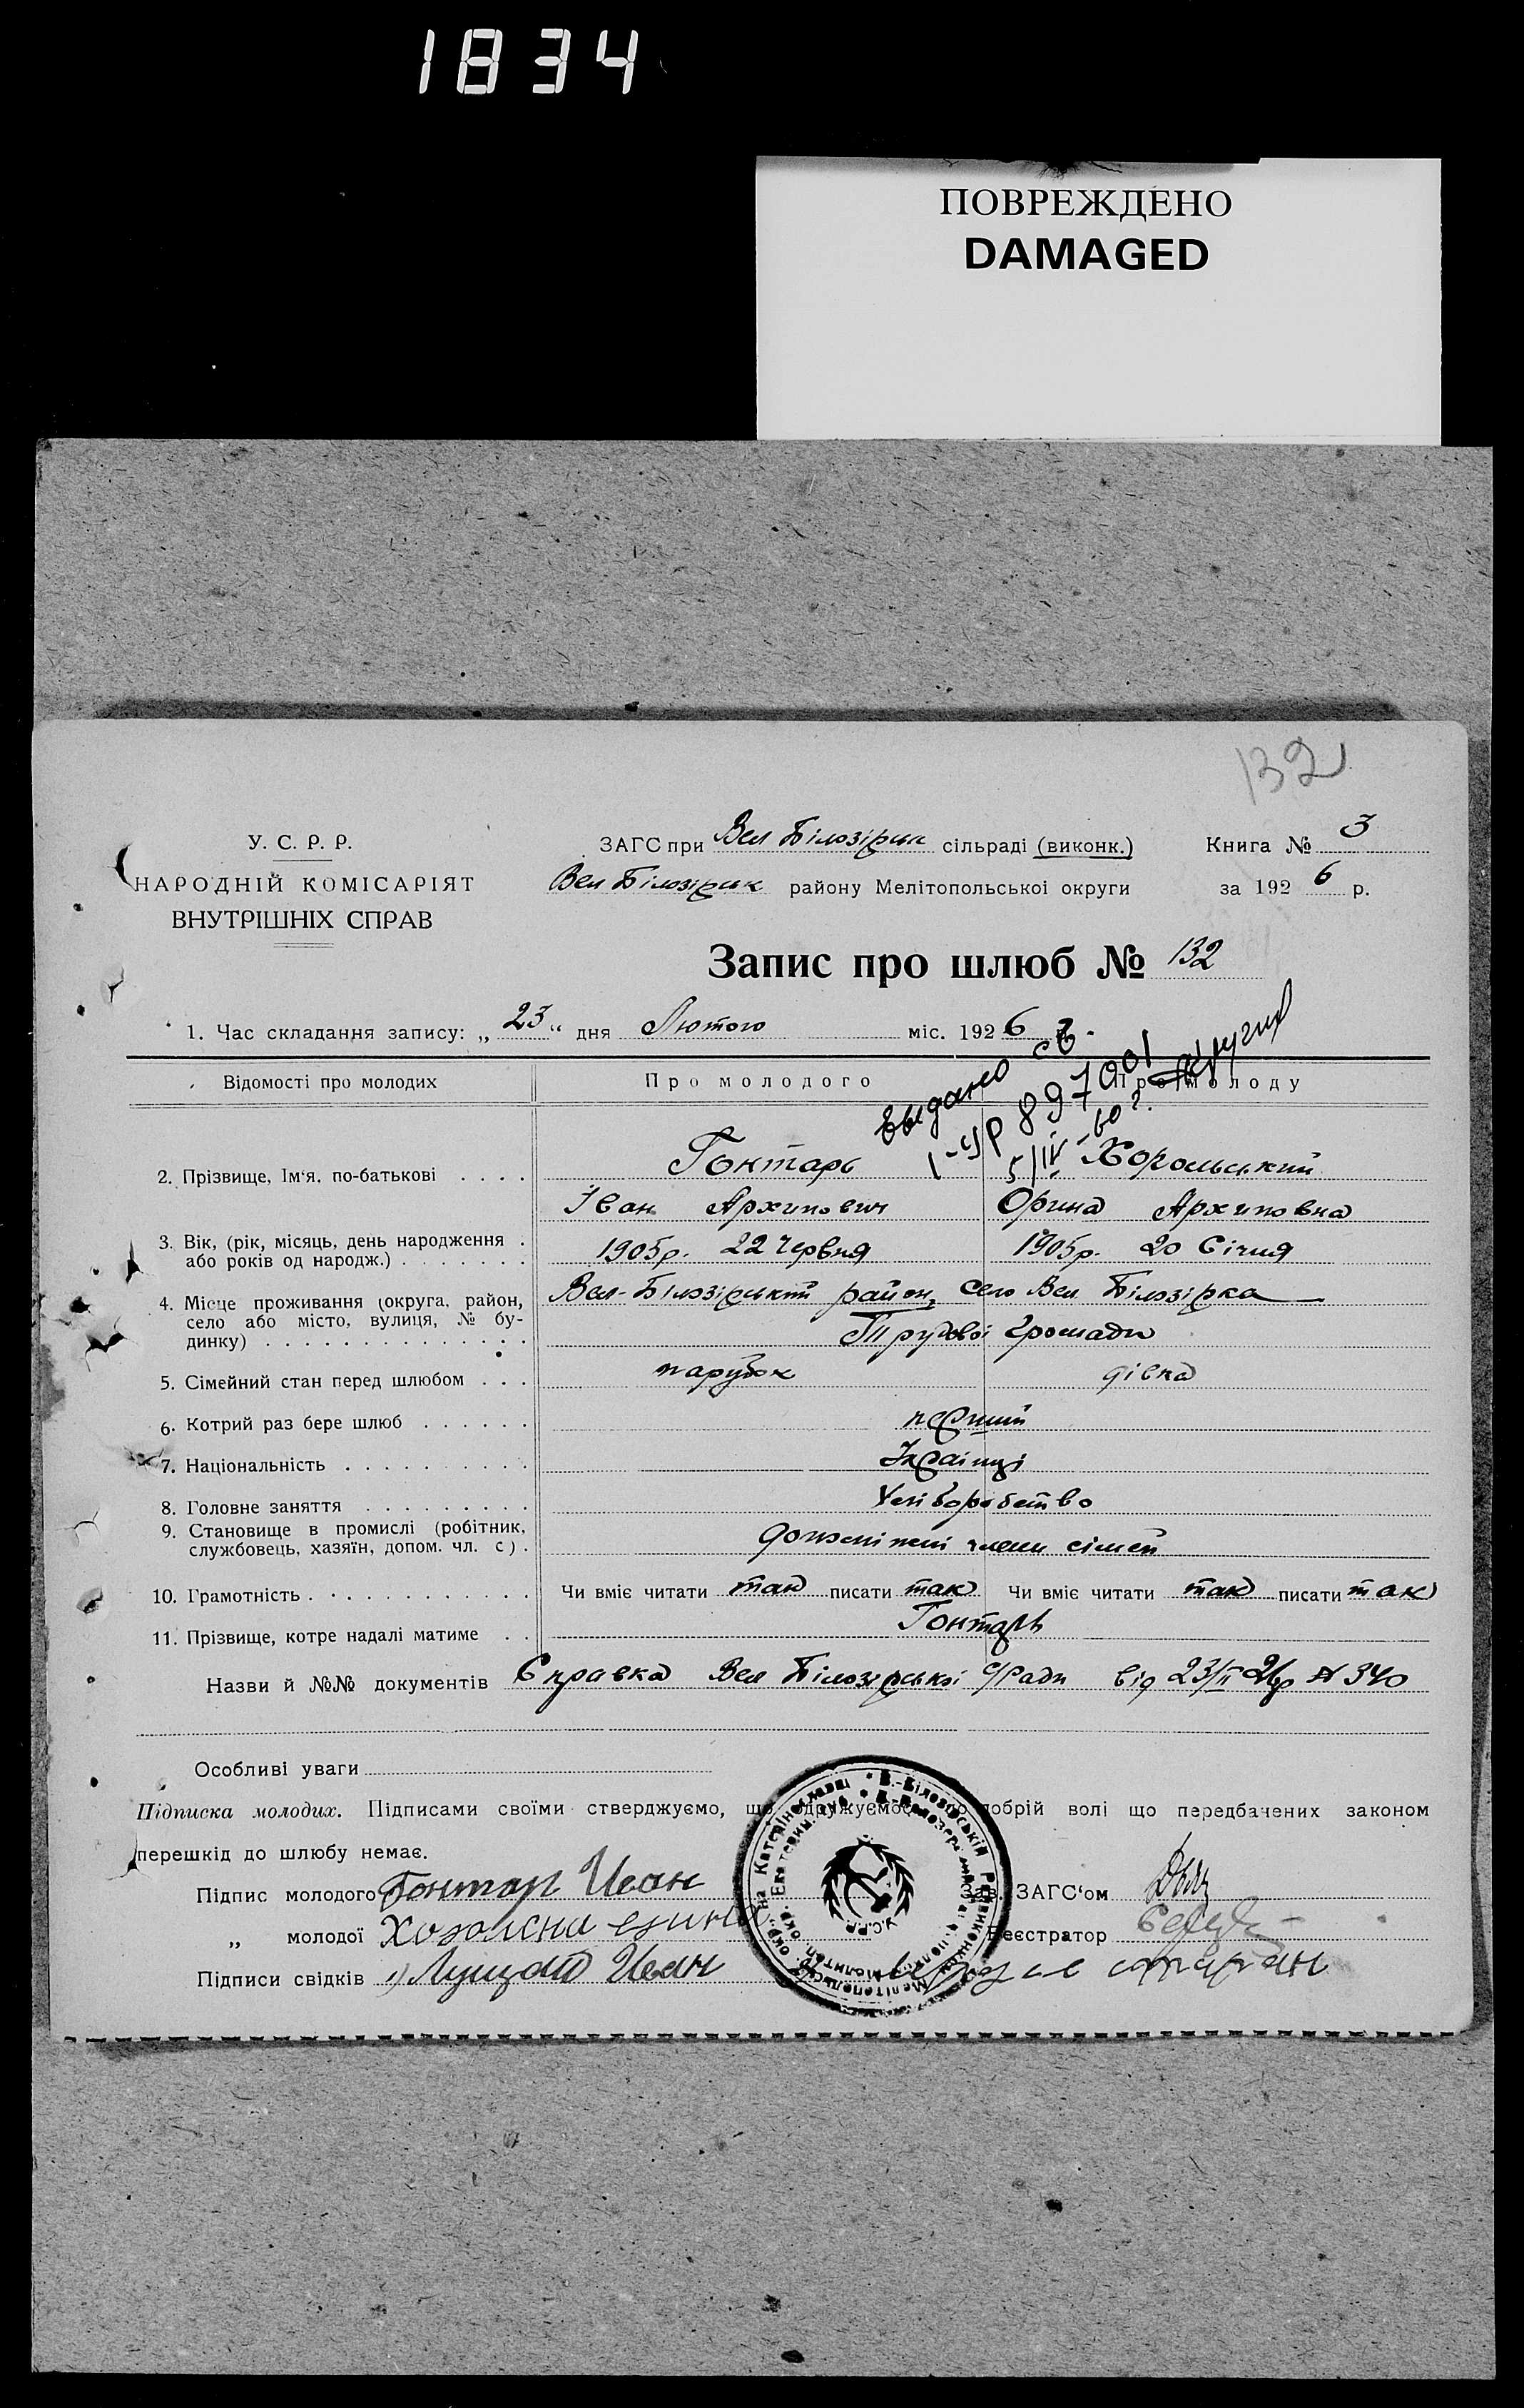 1834
ПОВРЕЖДЕНО
DAMAGED
132
У. С. Р. Р.
НАРОДНІЙ КОМІСАРІЯТ
ВНУТРІШНІХ СПРАВ
ЗАГС при Вел Білозірск сільраді (виконк.)
Вел Білозірск району Мелітопольськоі округи
Книга № 3
за 192 6 р.
Запис про шлюб № 132
1. Час складання запису: „ 23 “ дня Лютого міс. 192 6 р.
выдано св
I-УР 897001
5/IV-60 г.
Відомості про молодих
Про молодого
Про молоду
2. Прізвище, Ім‘я, по-батькові
Гонтарь
Хорольський
Іван Архипович
Орина Архиповна
3. Вік, (рік, місяць, день народження або років од народж.)
1905р. 22 Червня
1905р. 20 Січня
4. Місце проживання (округа, район, село або місто, вулиця, № будинку)
Вел-Білозірський район, село Вел Білозірка
громади
5. Сімейний стан перед шлюбом
парубок
дівка
6. Котрий раз бере шлюб
перший
7. Національність
Українці
8. Головне заняття
Хліборобство
9. Становище в промислі (робітник, службовець, хазяїн, допом. чл. с).
члени сімей
10. Грамотність
Чи вміє читати так писати так
Чи вміє читати так писати так
11. Прізвище, котре надалі матиме
Гонтарь
Назви й №№ документів Справка Вел Білозірської с/Ради від 23/II 26р № 340
Особливі уваги
Підписка молодих. Підписами своїми стверджуємо, що одружуємось по добрій волі що передбачених законом
перешкід до шлюбу немає.
Підпис молодого Гонтар Иван
„ молодої
Підписи свідків 1) Иван
Зав. ЗАГС‘ом
Реєстратор
У.С.Р.Р.